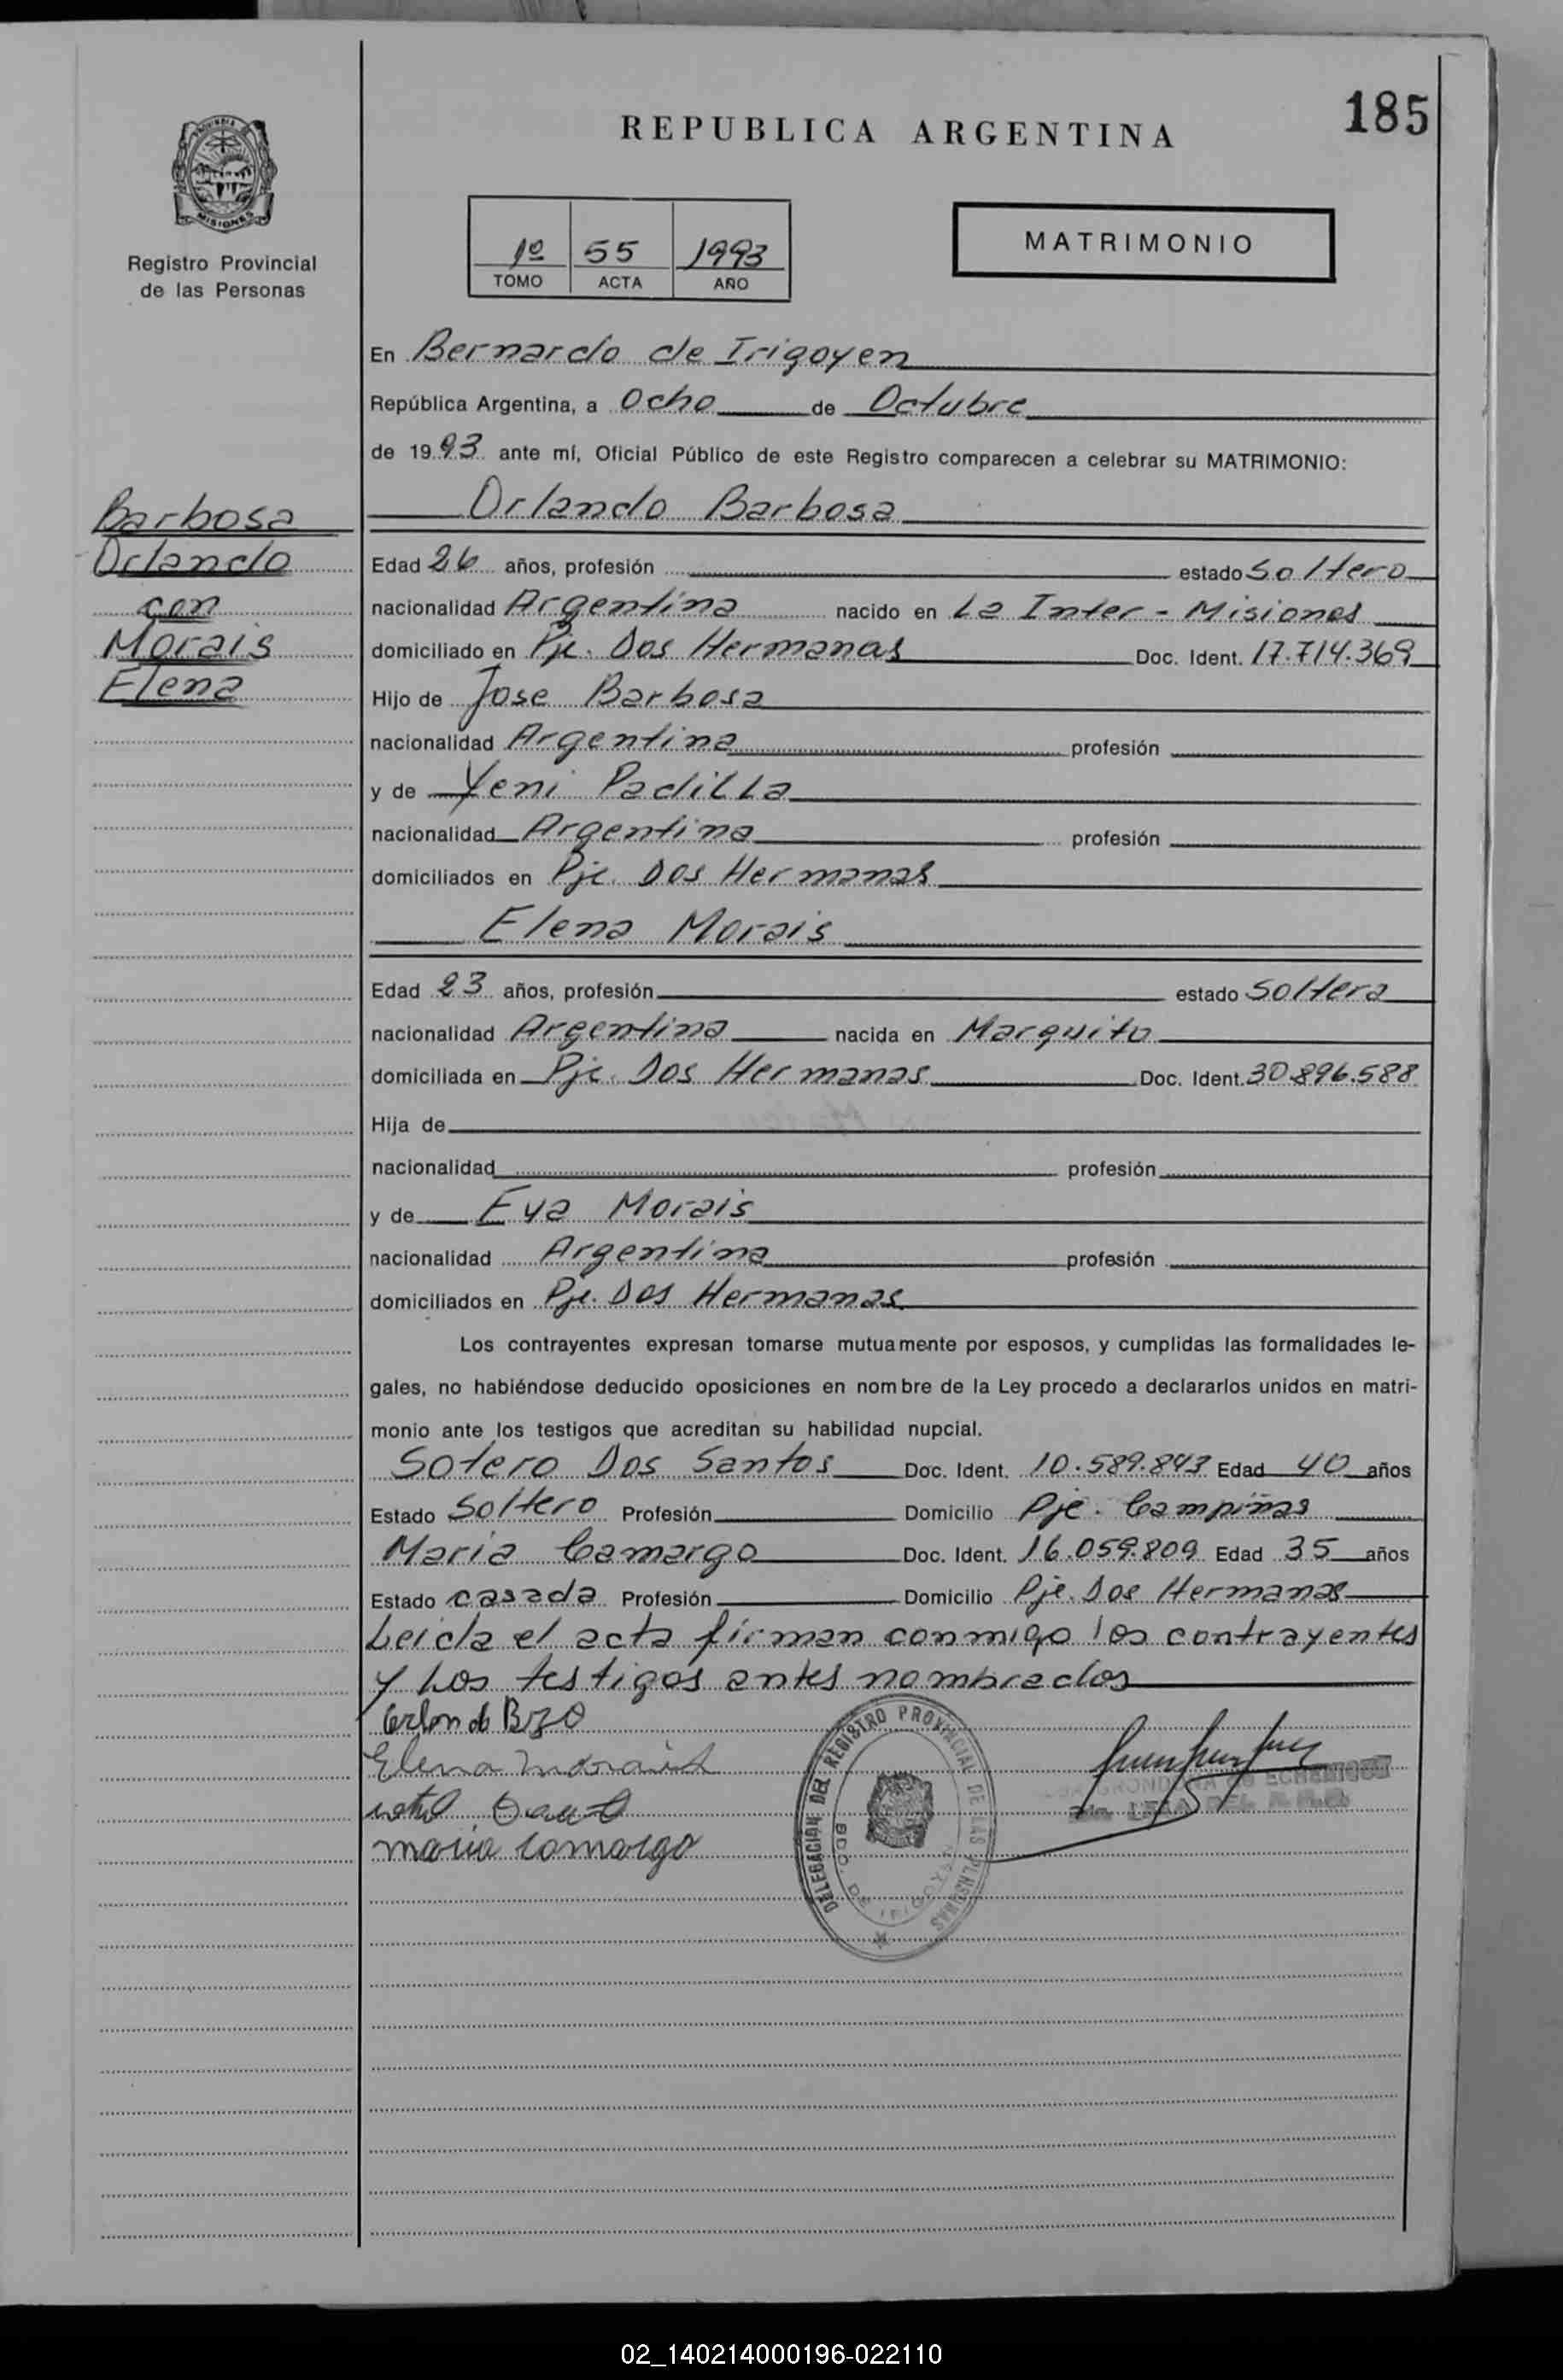 185
REPUBLICA ARGENTINA
PROVINCIA DE
MISIONES
Registro Provincial
de las Personas
1º 55 1993
TOMO ACTA AÑO
MATRIMONIO
En Bernardo de Irigoyen
República Argentina, a Ocho de Octubre
de 1993 ante mí, Oficial Público de este Registro comparecen a celebrar su MATRIMONIO:
Barbosa
Orlando
con
Morais
Elena
Orlando Barbosa
Edad 26 años, profesión estado Soltero
nacionalidad Argentina nacido en La Inter - Misiones
domiciliado en Pje. Dos Hermanas Doc. Ident. 17.714.369
Hijo de Jose Barbosa
nacionalidad Argentina profesión
y de Yeni Padilla
nacionalidad Argentina profesión
domiciliados en Pje. Dos Hermanas
Elena Morais
Edad 23 años, profesión estado Soltera
nacionalidad Argentina nacida en Marquito
domiciliada en Pje. Dos Hermanas Doc. Ident. 30.896.588
Hija de
nacionalidad profesión
y de Eva Morais
nacionalidad Argentina profesión
domiciliados en Pje. Dos Hermanas
Los contrayentes expresan tomarse mutuamente por esposos, y cumplidas las formalidades le-
gales, no habiéndose deducido oposiciones en nombre de la Ley procedo a declararlos unidos en matri-
monio ante los testigos que acreditan su habilidad nupcial.
Sotero Dos Santos Doc. Ident. 10.589.843 Edad 40 años
Estado Soltero Profesión Domicilio Pje. Campiñas
Maria Camargo Doc. Ident. 16.059.809 Edad 35 años
Estado casada Profesión Domicilio Pje. Dos Hermanas
Leida el acta firman conmigo los contrayentes
y Los testigos antes nombrados
Elena Morais
maria Comargo
DELEGACIÓN DEL REGISTRO PROVINCIAL DE LAS PERSONAS
BDO. DE IRIGOYEN
02_140214000196-022110